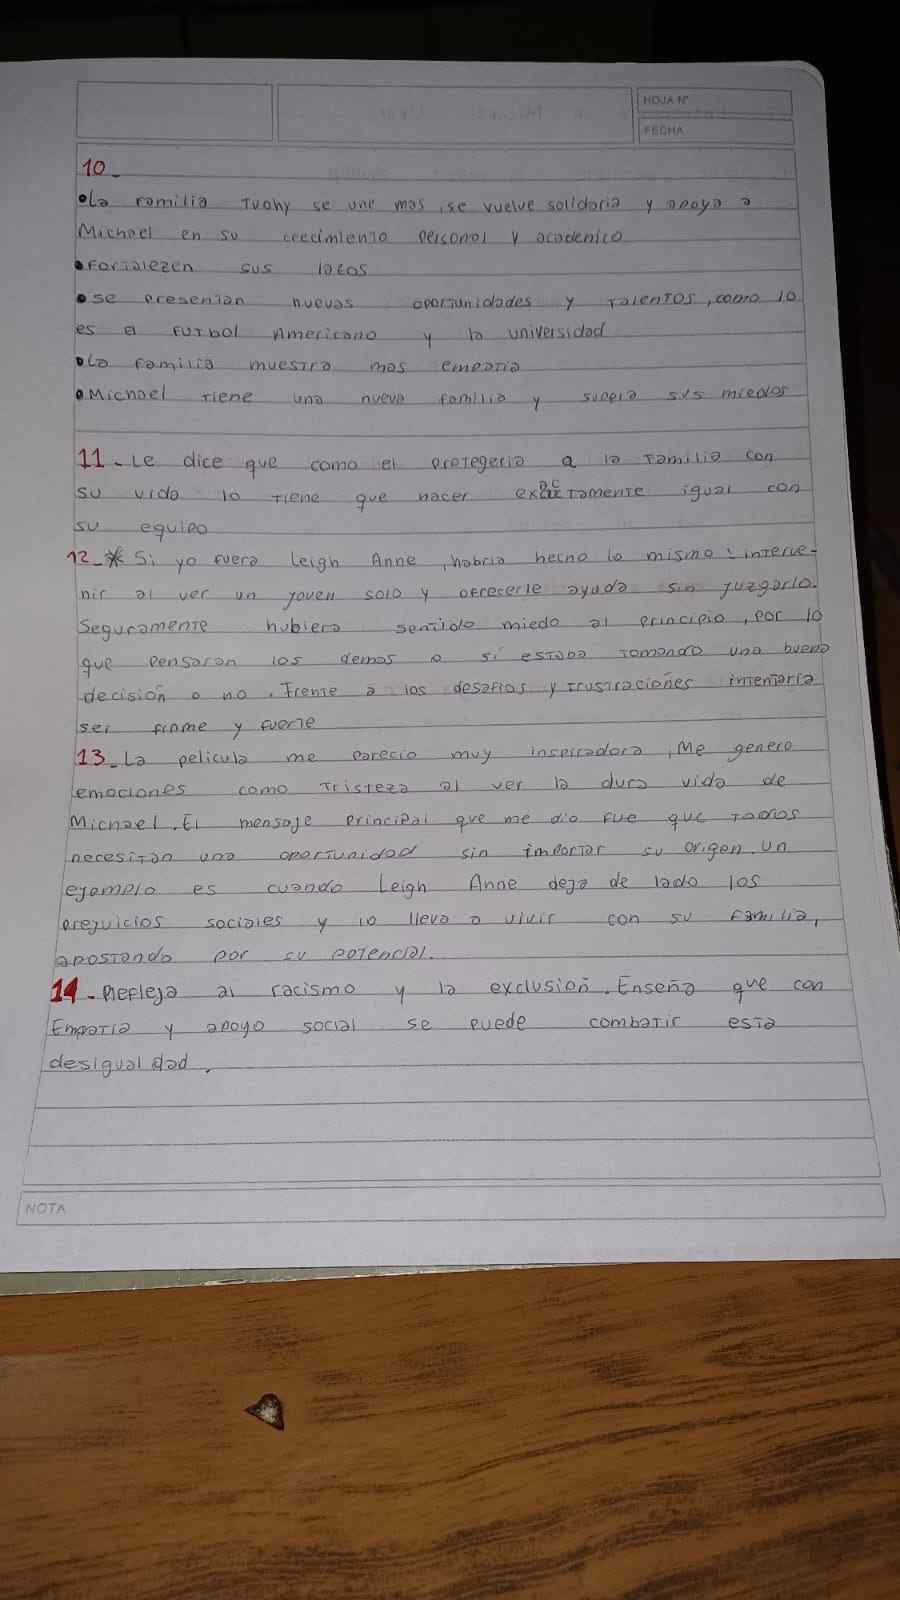 HOJA N°
FECHA
10_
•La familia Tuohy se une mas, se vuelve solidaria y apoya a
Michael en su crecimiento personal y academico
•Fortalezen sus lazos
•se presentan nuevas oportunidades y talentos, como lo
es el Futbol Americano y la universidad
•La familia muestra mas empatia
•Michael tiene una nueva familia y supera sus miedos
11_ Le dice que como el protegeria a la familia con
su vida lo tiene que hacer exactamente igual con
su equipo
12_* Si yo fuera Leigh Anne, habria hecho lo mismo: interve-
nir al ver un joven solo y ofrecerle ayuda sin juzgarlo.
Seguramente hubiera sentido miedo al principio, por lo
que pensaran los demas o si estaba tomando una buena
decisión o no. Frente a los desafios y frustraciones intentaria
ser firme y fuerte
13_La pelicula me parecio muy inspiradora, Me genero
emociones como tristeza al ver la dura vida de
Michael. El mensaje principal que me dio fue que todos
necesitan una oportunidad sin importar su origen. Un
ejemplo es cuando Leigh Anne deja de lado los
prejuicios sociales y lo lleva a vivir con su familia,
apostando por su potencial.
14_Refleja al racismo y la exclusión. Enseña que con
Empatia y apoyo social se puede combatir esta
desigualdad.
NOTA